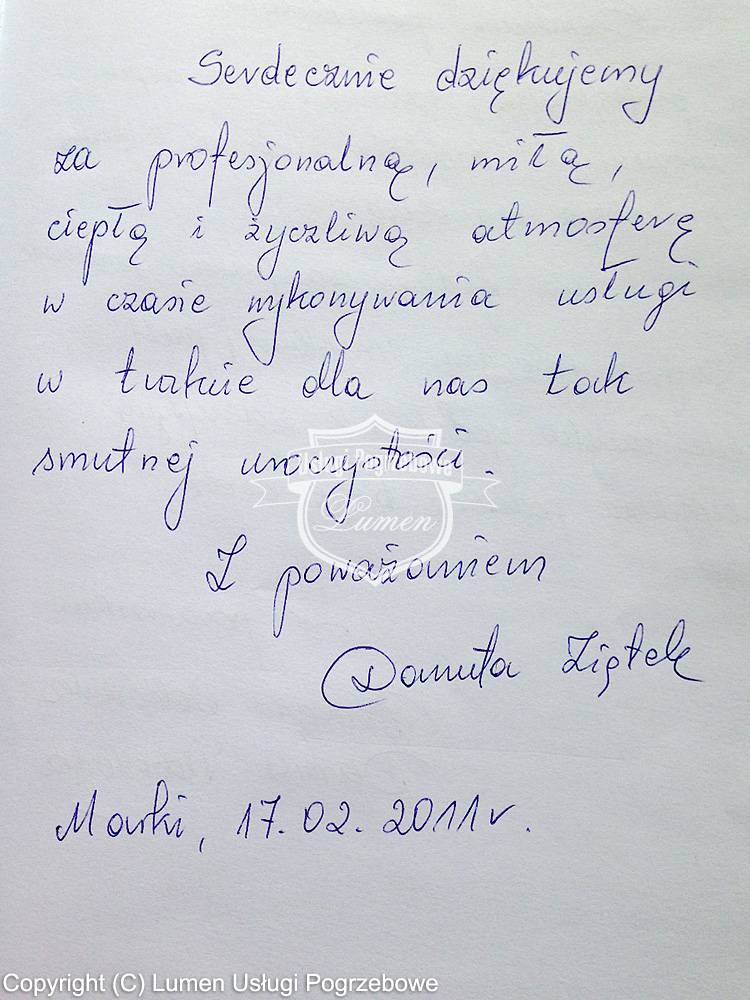 Serdecznie dziękujemy
za profesjonalną, miłą,
ciepłą i życzliwą atmosferę
w czasie wykonywania usługi
w trakcie dla nas tak
smutnej uroczystości.
Lumen
Z poważaniem
Danuta Ziętek
Marki, 17.02.2011 r.
Copyright (C) Lumen Usługi Pogrzebowe